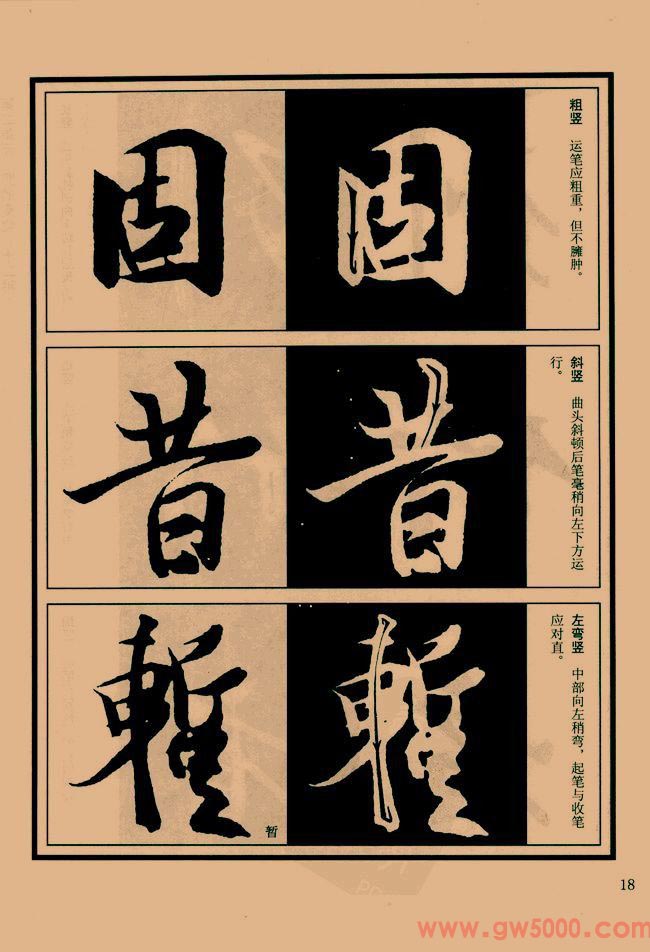 粗竖　运笔应粗重，但不臃肿。
固
固
斜竖　曲头斜顿后笔毫稍向左下方运
行。
昔
昔
左弯竖　中部向左稍弯，起笔与收笔
应对直。
暂
18
www.gw5000.com